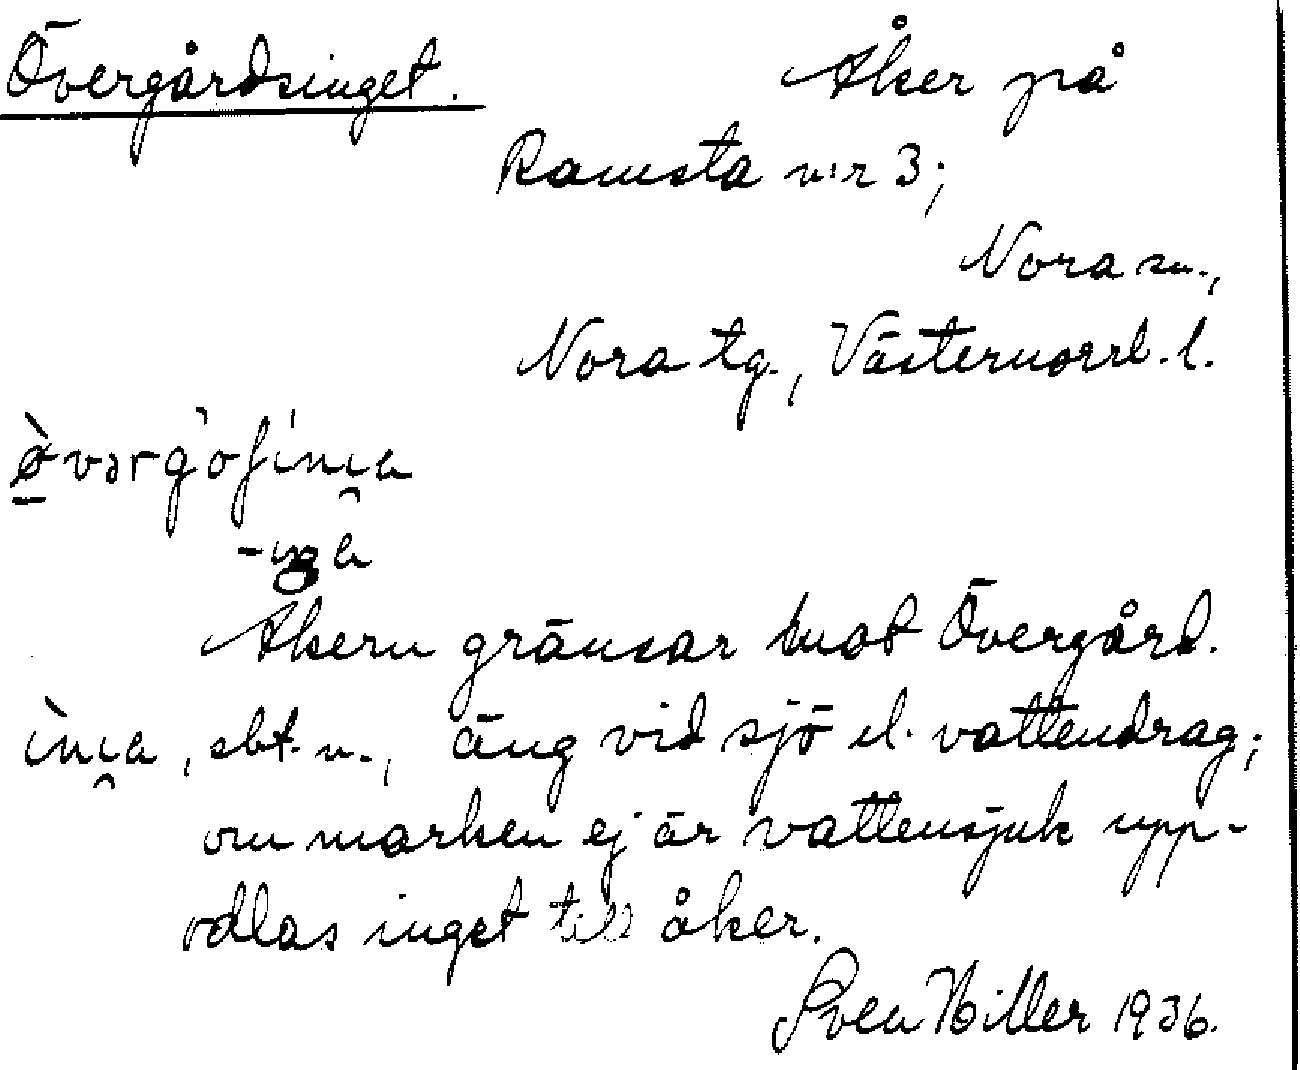 Övergårdsinget. Åker på
Ramsta n:r 3;
Nora sn.,
Nora tg., Västernorrl. l.
Åkern gränsar mot Övergård.
, sbt. n., äng vid sjö el. vattendrag;
om marken ej är vattensjuk upp-
odlas inget till åker.
Sven Hiller 1936.